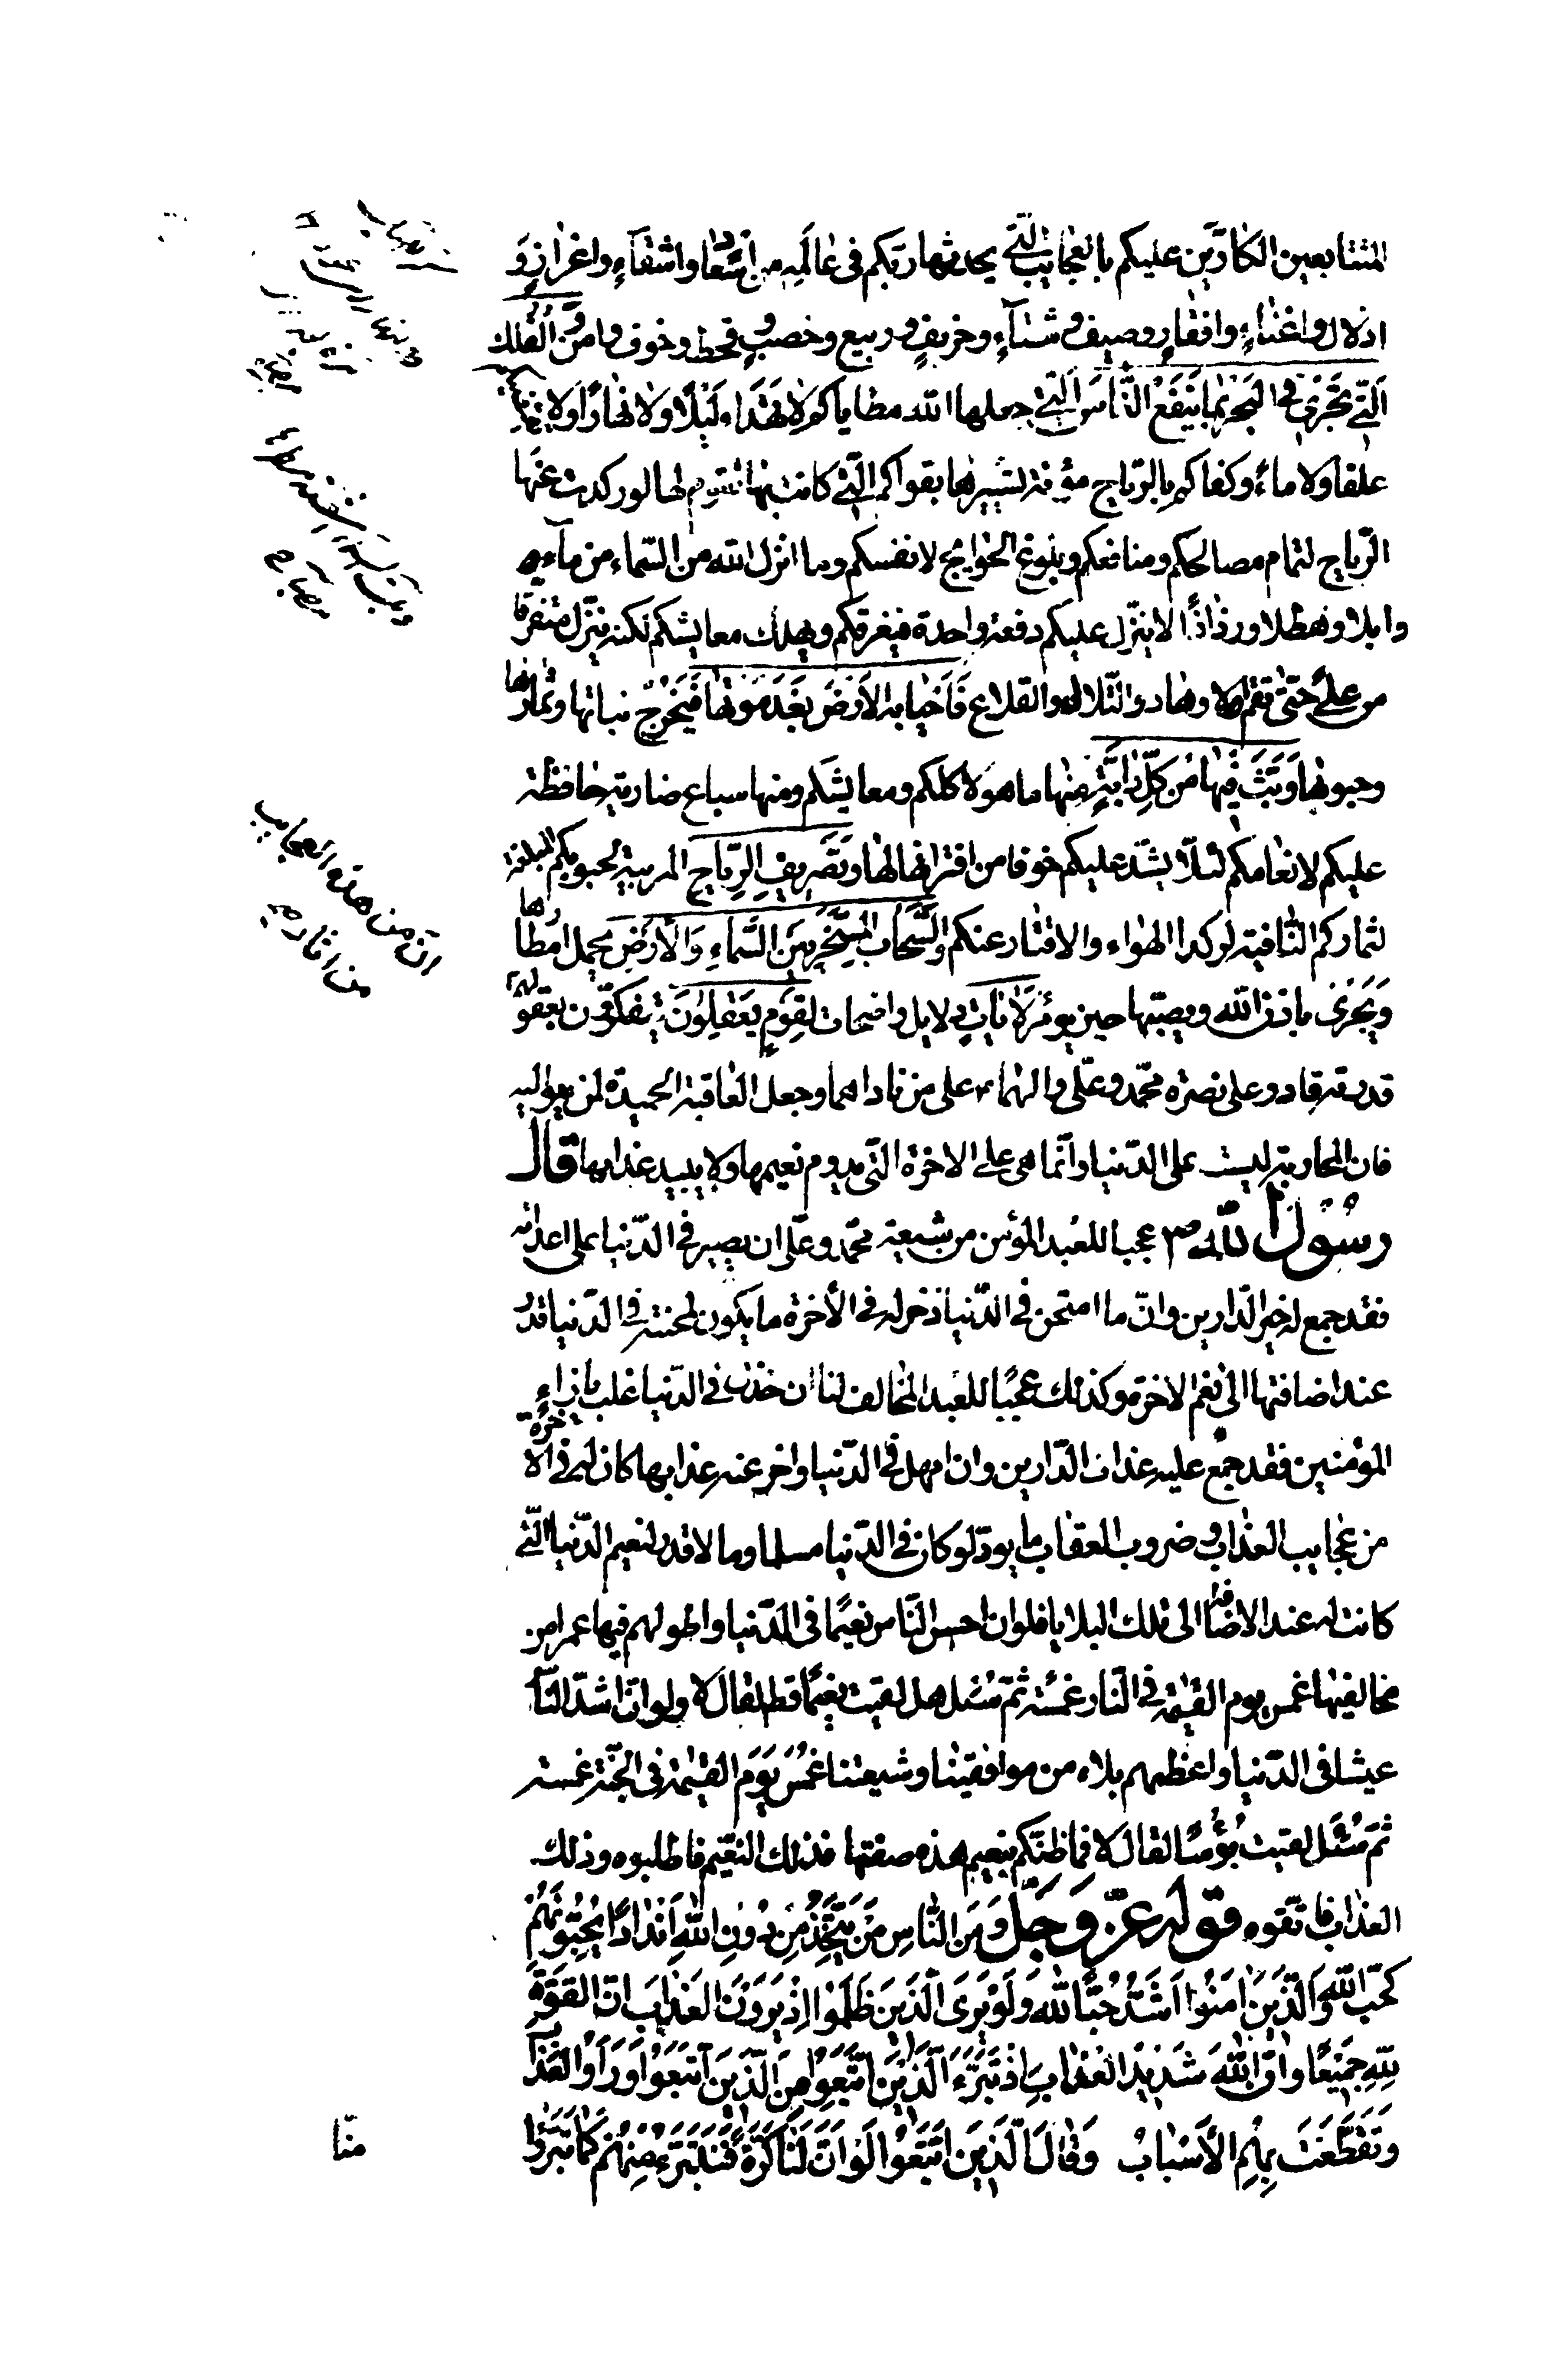 المتتابعين الكادّين عليكم بالعجايب الّتي يحدثها ربّكم في عالمه من اسعاد واشقاء واعزاز و
اذلال واغناء وافقار وصيف وشتاء وخريف وربيع وخصب وقحط وخوف وامن والفلك
الّتي تجري في البحر بما ينفع النّاس الّتي جعلها الله مطاياكم لا تهدأ ليلا ولا نهارا ولا
علفا ولا ماء وكفاكم بالرّياح مؤنة تسييرها بقواكم الّتي كانت لا تقوم لها لو ركدت عنها
الرّياح لتمام مصالحكم ومنافعكم وبلوغ الحوائج لانفسكم وما انزل الله من السّماء من ماء
وابلا وهطلا ورذاذا لا ينزّل عليكم دفعة واحدة فيغرقكم ويهلك معايشكم لكنه ينزّل متفرقا
من علي حتّى تعم الاوهاد والتّلال والقلاع فاحيا به الارض بعد موتها فيخرج نباتها وثمارها
وحبوبها وبثّ فيها من كلّ دابّة منها ما هو لاكلكم ومعايشكم ومنها سباع ضارية حافظة
عليكم لانعامكم لئلّا يشذ عليكم خوفا من افتراسها لها وتصريف الرّياح المربية لحبوبكم المبلغة
لثماركم النّافية لركد الهواء والاقتار عنكم والسّحاب المسخّر بين السّماء والارض يحمل امطارها
ويجري باذن الله ويصبّها حين يؤمر لآيات دلايل واضحات لقوم يعقلون يتفكّرون بعقولهم
قدرته قادر على نصرة محمّد وعلي والهما ع على من ناداهما وجعل العاقبة الحميدة لمن يواليه
فان المحاربة ليست على الدّنيا وانّما هي علي الاخرة الّتي يدوم نعيمها ولا يبيد عذابها قال
رسول الله ص عجبا للعبد المؤمن من شيعة محمّد وعلي ان يصير في الدّنيا على اعدائه
فقد جمع له خير الدّارين وان ما امتحن في الدّنيا ذخر له في الاخرة ما يكون لمحنته في الدّنيا قدر
عند اضافتها الى نعم الاخرة وكذلك عجبا للعبد المخالف لنا ان خذل في الدّنيا غلب بازاء
المؤمنين فقد جمع عليه عذاب الدّارين وان امهل في الدّنيا واخر عنه عذابها كان له في الاخرة
من عجايب العذاب وضروب العقاب ما يودّ لو كان في الدّنيا مسلما وما لا قدر لنعيم الدّنيا الّتي
كانت له عند الاضافة الى تلك البلايا فلو ان احسن النّاس نعيما في الدّنيا واطولهم فيها عمرا من
مخالفينا غمس يوم القيمة في النّار غمسة ثمّ سئل هل لقيت نعيما قط لقال لا ولو انّ اشدّ النّاس
عيشا في الدّنيا واعظمهم بلاء من موافقينا وشيعتنا غمس يوم القيمة في الجنّة غمسة
ثمّ سئل لقيت بؤسا لقال لا فما ظنّكم بنعيم هذه صفتها فذلك النّعيم فاطلبوه وذلك
العذاب فاتّقوه قوله عزّ وجلّ ومن النّاس من يتّخذ من دون الله اندادا يحبّونهم
كحبّ الله والّذين امنوا اشدّ حبّا لله ولو يرى الّذين ظلموا اذ يرون العذاب انّ القوّة
لله جميعا وانّ الله شديد العذاب اذ تبرّء الّذين اتّبعوا من الّذين اتّبعوا وراوا العذاب
وتقطّعت بهم الاسباب وقال الّذين اتّبعوا لو انّ لنا كرّة فنتبرّء منهم كما تبرّؤا
منّا